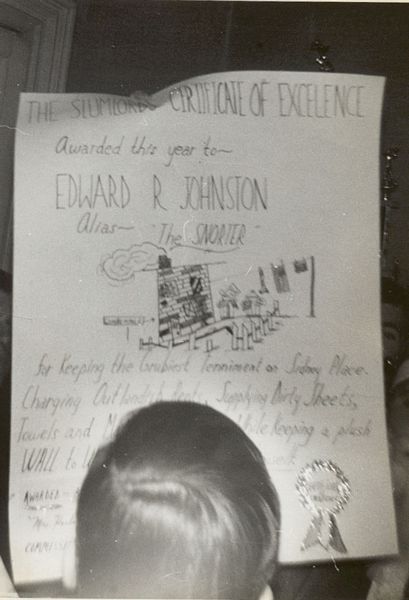 THE SLUMLORDS CERTIFICATE OF EXCELENCE
Awarded this year to~
EDWARD R JOHNSTON
Alias~ "The SNORTER"
for Keeping the Grubiest Tenniment on Sidney Place.
Charging Outlandish Rents, Supplying Dirty Sheets,
Towels and While Keeping a plush
WALL to
AWARDED
"Mrs.
COMMISS